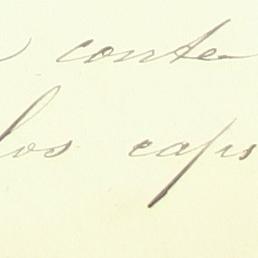 conte
los caps